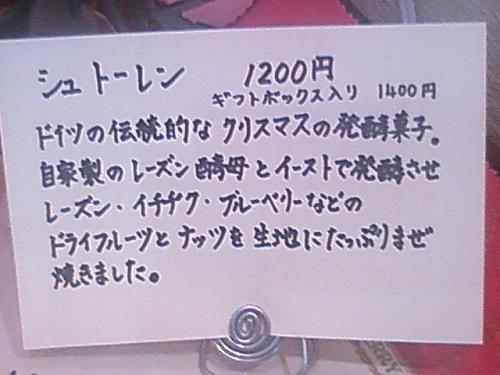 シュトーレン 1200円
ギフトボックス入り 1400円
ドイツの伝統的な クリスマスの発酵菓子。
自家製のレーズン酵母とイーストで発酵させ
レーズン・イチヂク・ブルーベリーなどの
ドライフルーツとナッツを生地にたっぷりまぜ
焼きました。